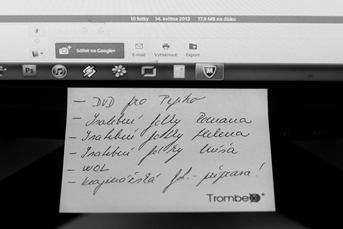 10 fotky 14. května 2012 17,8 MB na disku
Sdílet na Google+
E-mail Vytisknout Export
Ps
— DVD pro Pepíka
— Svatební fotky Romana
— Svatební fotky Helena
— Svatební fotky Míša
— WOL
— Krajinářská fot. - příprava!
Trombe